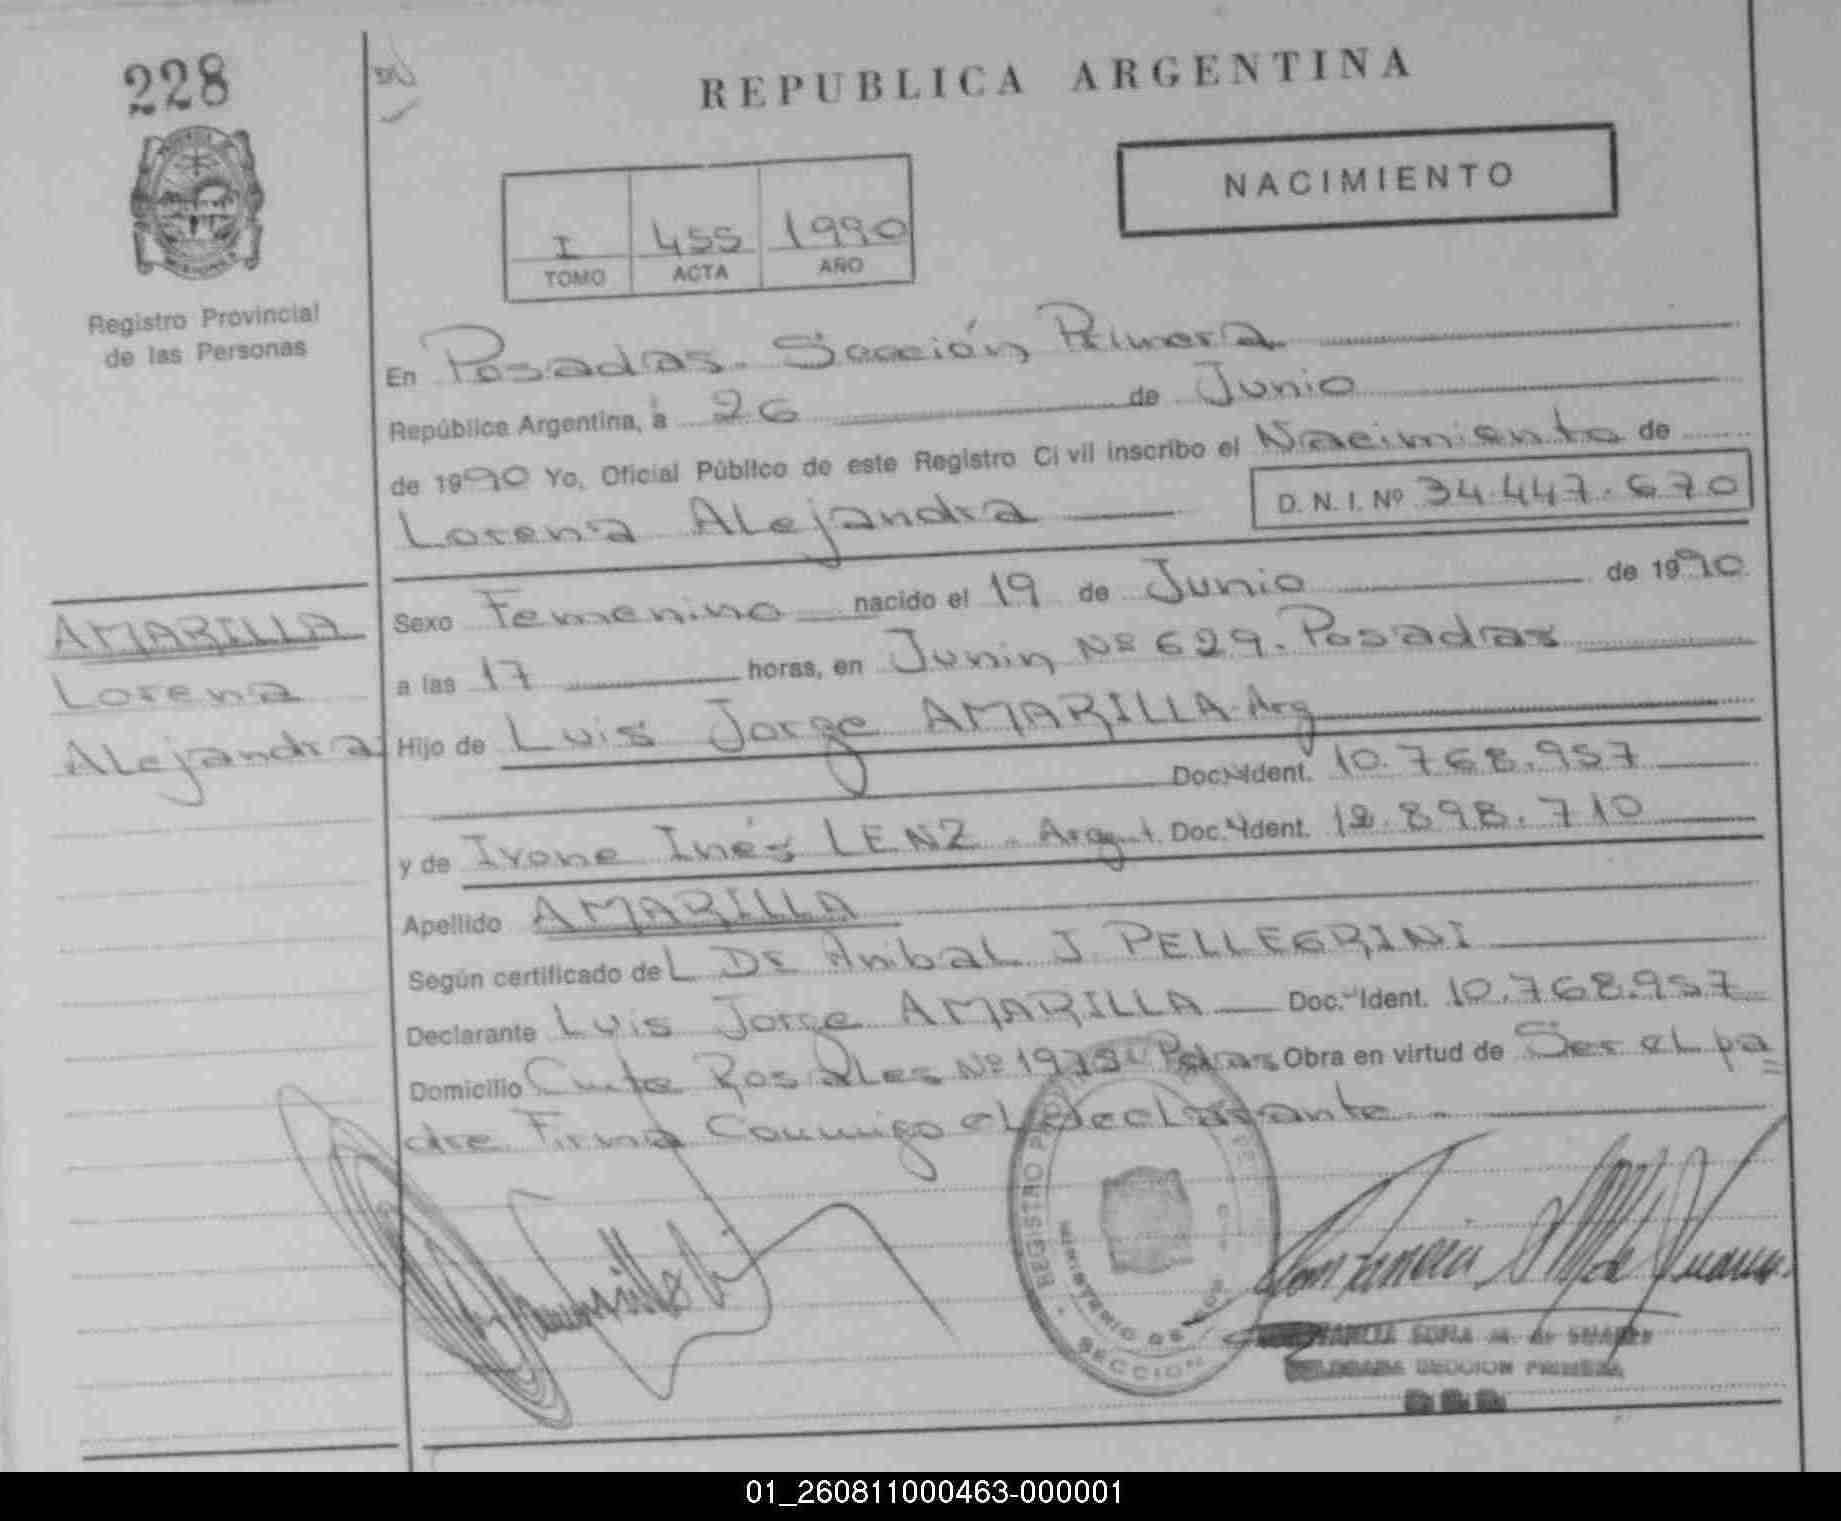 228
REPUBLICA ARGENTINA
NACIMIENTO
I 455 1990
TOMO ACTA AÑO
Registro Provincial
de las Personas
En Posadas. Sección Primera
República Argentina, a 26 de Junio
de 1990 Yo, Oficial Público de este Registro Civil inscribo el Nacimiento de
Lorena Alejandra D. N. I. Nº 34.447.670
AMARILLA
Lorena
Alejandra
Sexo Femenino nacido el 19 de Junio de 1990
a las 17 horas, en Junin Nº 629. Posadas
Hijo de Luis Jorge AMARILLA Arg
Doc. Ident. 10.768.957
y de Ivone Inés LENZ. Arg Doc. Ident. 12.898.710
Apellido AMARILLA
Según certificado del Dr Anibal J. PELLEGRINI
Declarante Luis Jorge AMARILLA Doc. Ident. 10.768.957
Domicilio Rosales Nº Obra en virtud de Ser el pa
dre Firma Conmigo el declarante
REGISTRO
MINISTERIO DE
SECCION
SOFIA M. de
DELEGADA SECCION PRIMERA
01_260811000463-000001